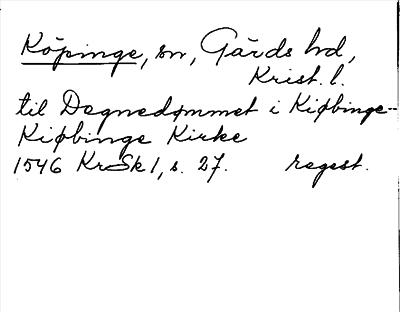 Köpinge, sn, Gärds hd,
Krist. l.
til Degnedømmet i Kiøbinge-
Kiøbinge Kirke
1546 KrSk 1, s. 27. regest.